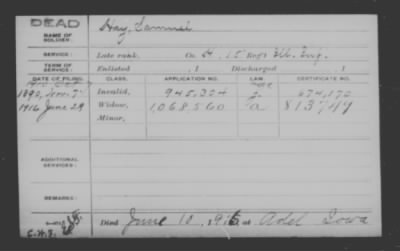 DEAD
NAME OF SOLDIER: Hay, Samuel
SERVICE: Late rank, Co. H, 15 Reg't Ill. Inf.
TERM OF SERVICE: Enlisted , 1 Discharged , 1
DATE OF FILING. CLASS. APPLICATION NO. LAW. CERTIFICATE NO.
1890, Nov. 7 Invalid, 945,324 674,170
1916 June 29 Widow, 1,068,560 813,749
Minor,
ADDITIONAL SERVICES:
REMARKS:
Died June 10, 1916 at Adel Iowa